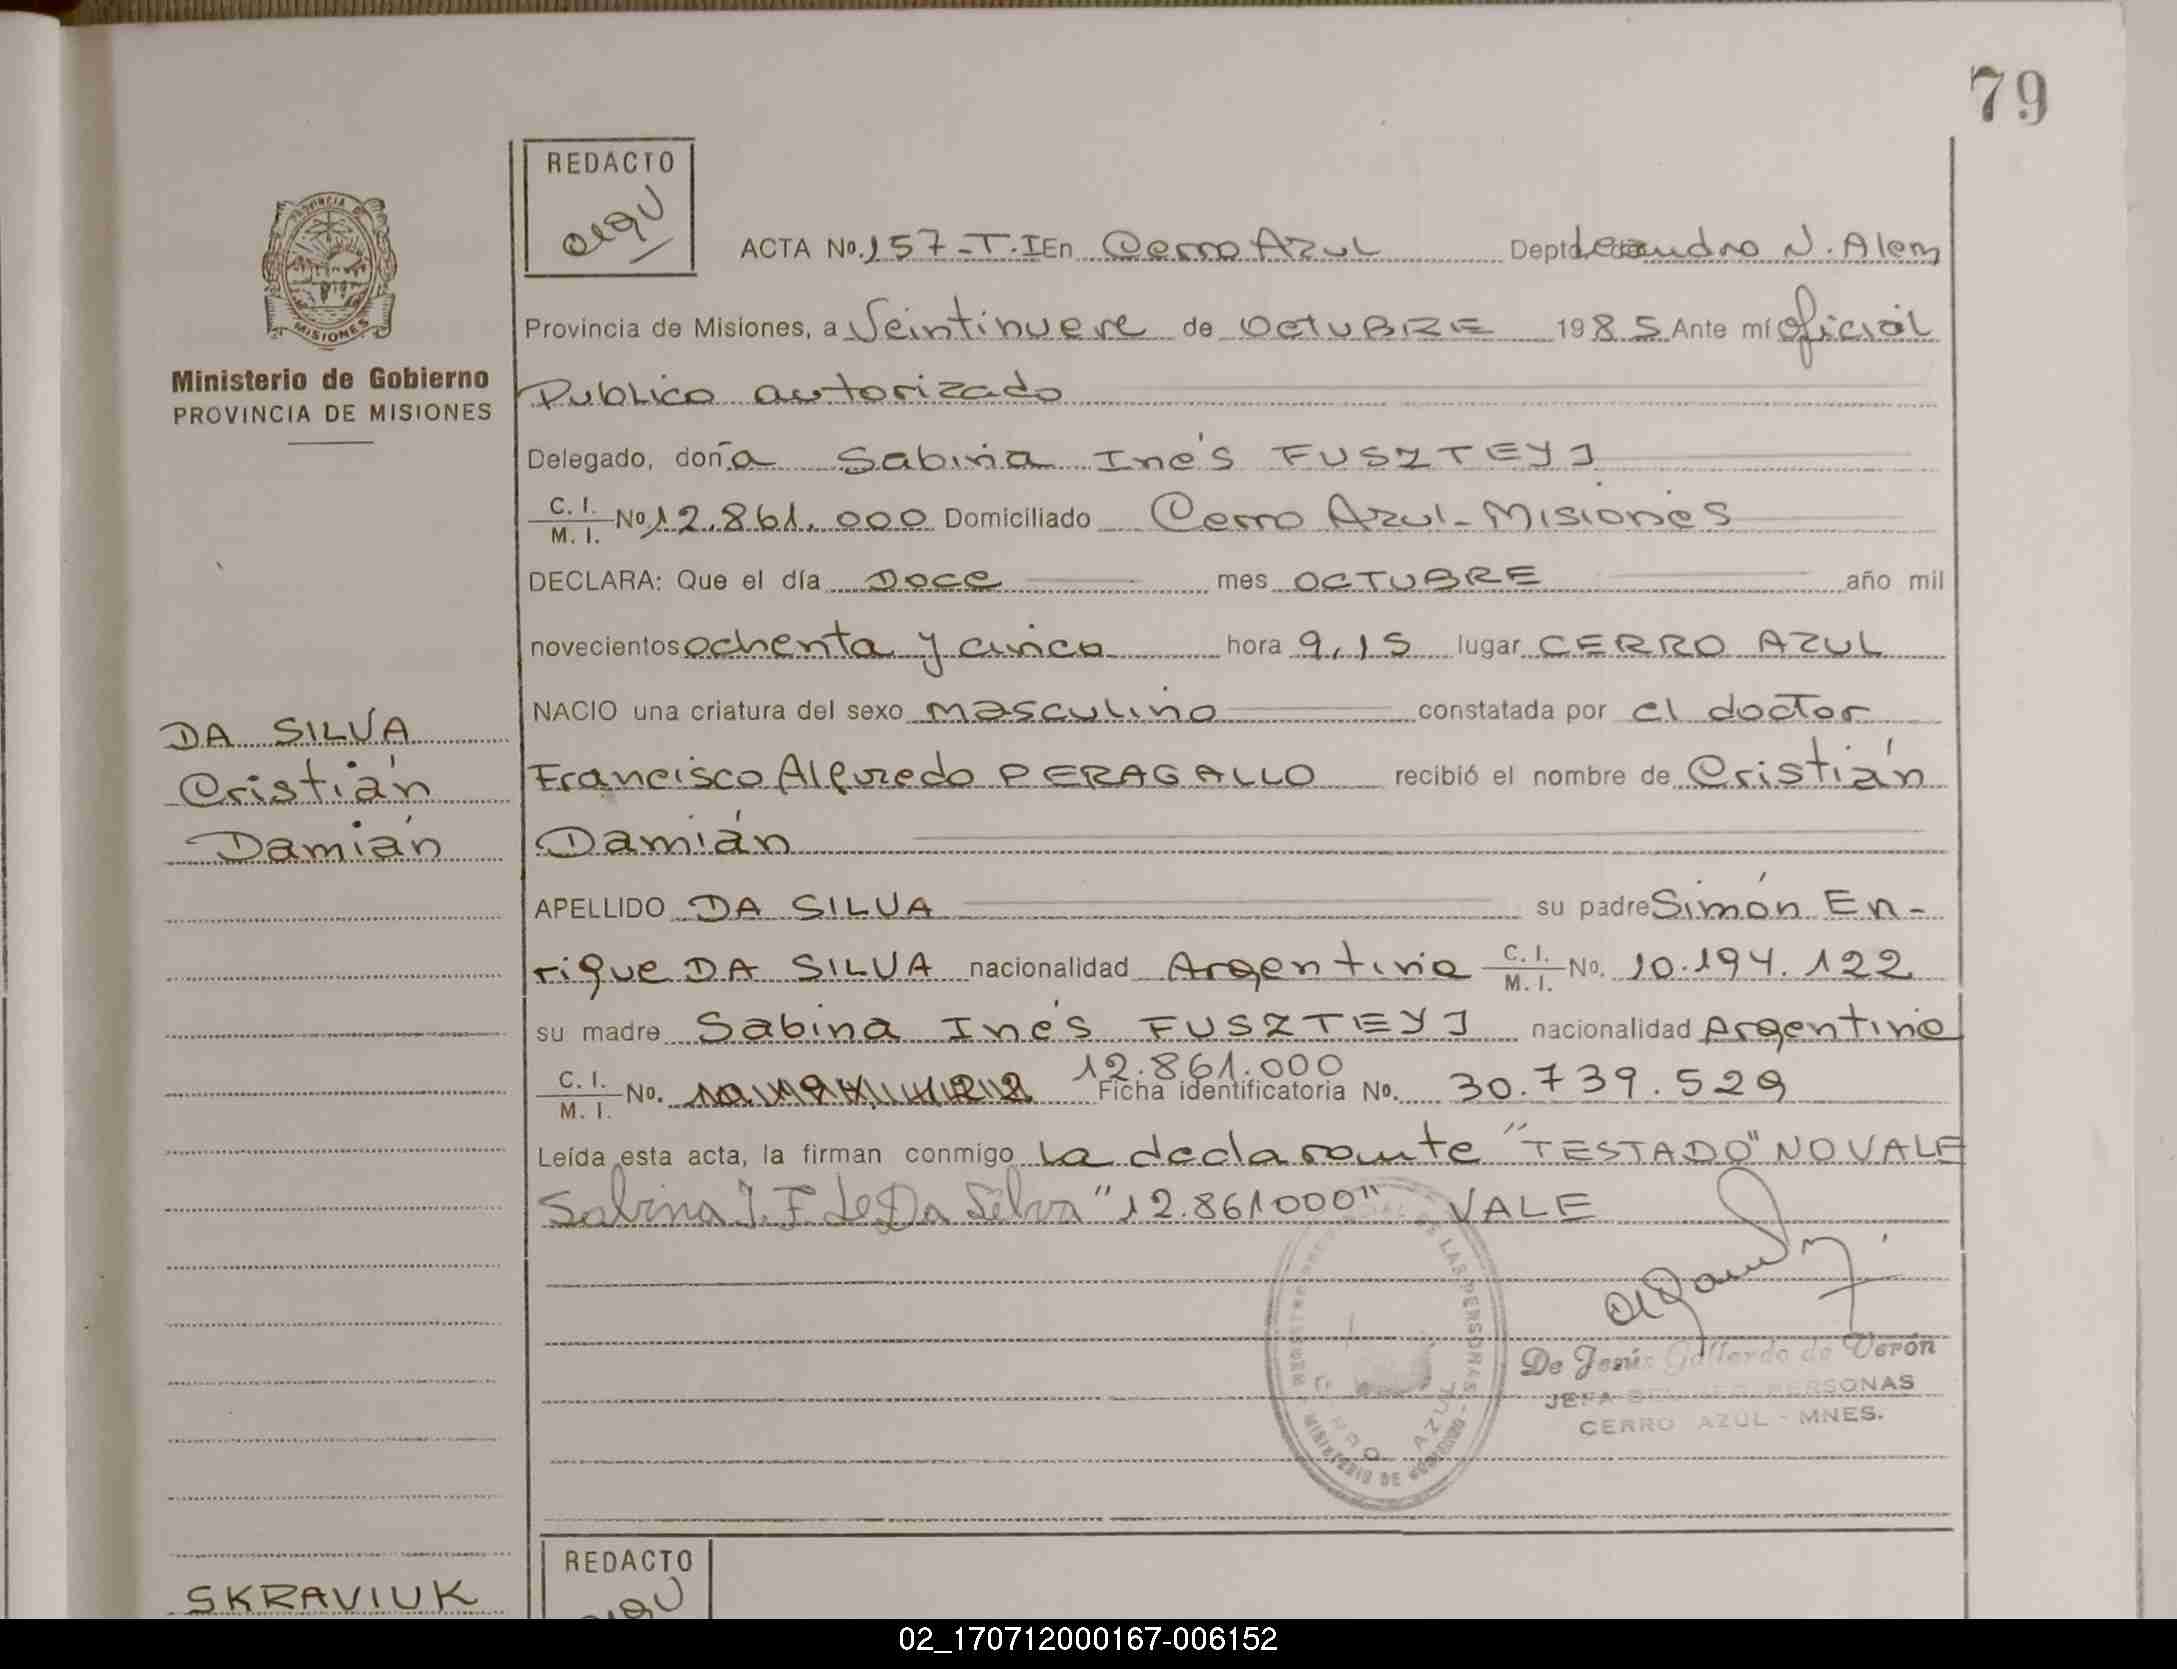 79
REDACTO
PROVINCIA DE
MISIONES
ACTA No. 157-T.I En Cerro Azul Depto. Leandro N. Alem
Provincia de Misiones, a Veintinueve de OCTUBRE 1985 Ante mí oficial
Publico autorizado
Ministerio de Gobierno
PROVINCIA DE MISIONES
Delegado, doña Sabina Inés FUSZTEYJ
C. I. / M. I. No 12.861.000 Domiciliado Cerro Azul - Misiones
DECLARA: Que el día Doce mes OCTUBRE año mil
novecientos ochenta y cinco hora 9,15 lugar CERRO AZUL
NACIO una criatura del sexo masculino constatada por el doctor
Francisco Alfredo PERAGALLO recibió el nombre de Cristián
Damián
DA SILVA
Cristián
Damián
APELLIDO DA SILVA su padre Simón En-
rique DA SILVA nacionalidad Argentina C. I. / M. I. No. 10.194.122
su madre Sabina Inés FUSZTEYJ nacionalidad Argentina
12.861.000
C. I. / M. I. No. Ficha identificatoria No. 30.739.529
Leída esta acta, la firman conmigo la declarante "TESTADO" NO VALE
Sabina I. F. de Da Silva "12.861000" VALE
De Jesús Gallardo de Verón
JEFA PERSONAS
CERRO AZUL - MNES.
DE LAS PERSONAS
MINISTERIO DE GOBIERNO
CERRO AZUL
REDACTO
SKRAVIUK
02_170712000167-006152